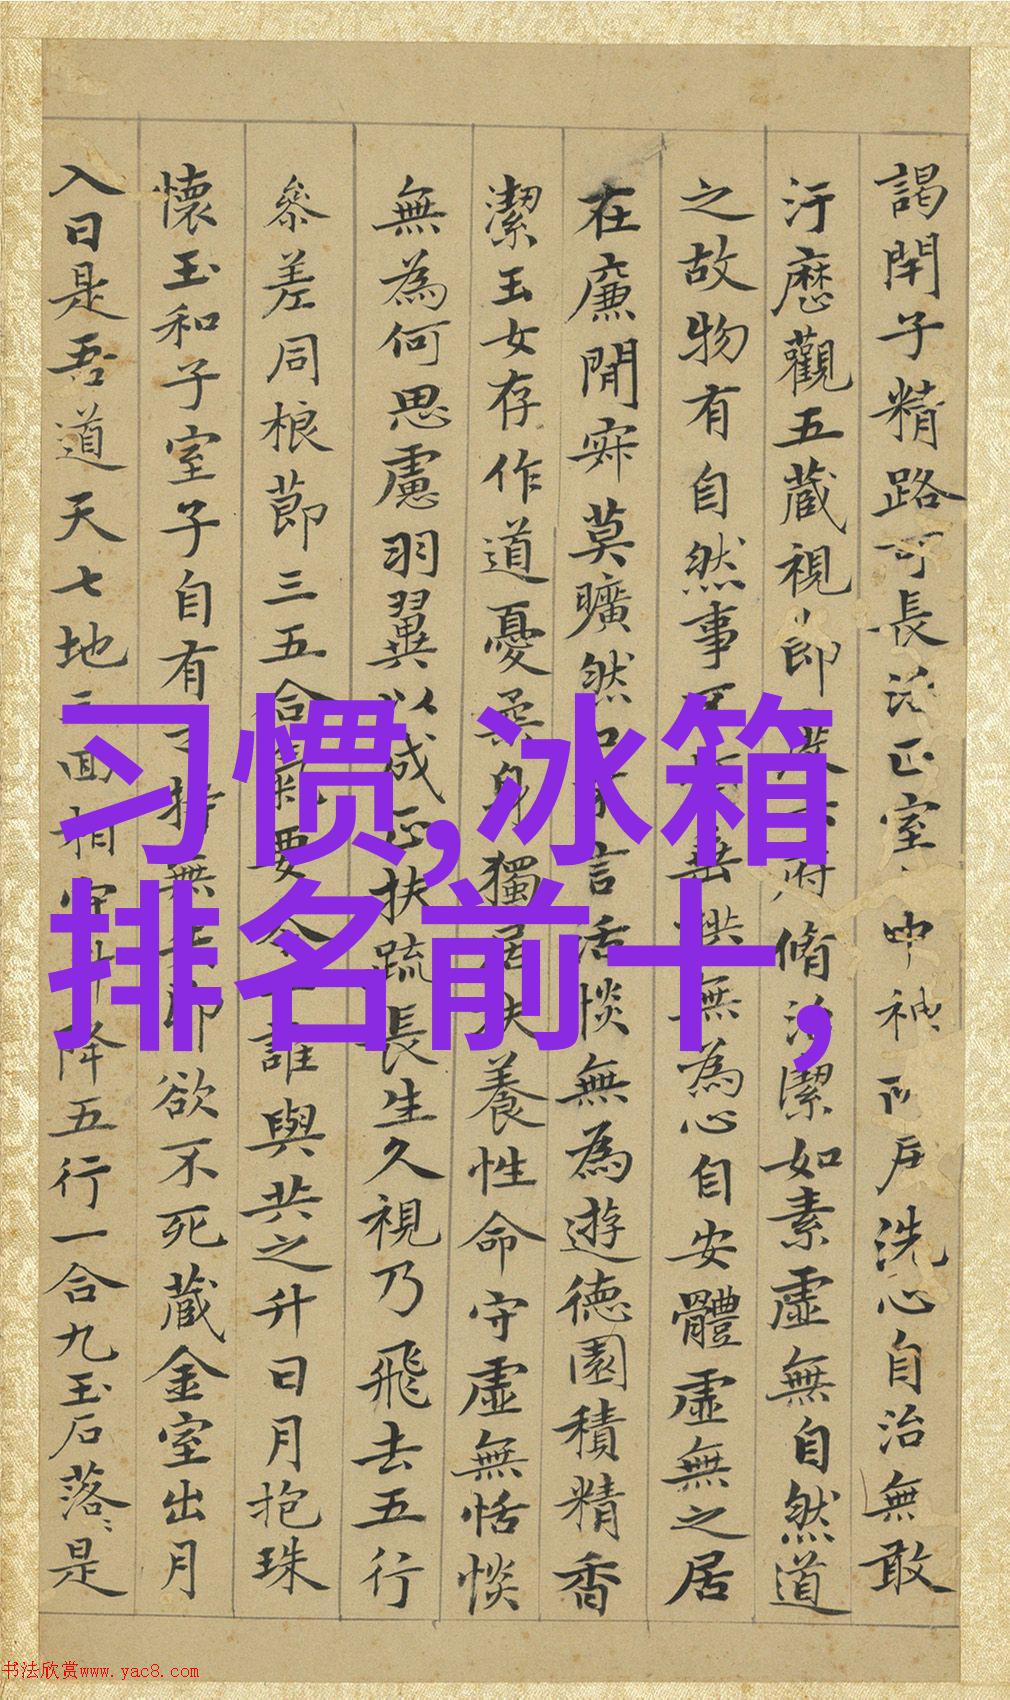 謁閉子精路可長活正室
中神所居洗心自治無敢
汙歷觀五藏視節
府脩治潔如素虛無自然道
之故物有自然事
無為心自安體虛無之居
在廉閒寂莫曠然
言活惔無為遊德園積精香
潔玉女存作道憂柔身獨居
養性命守虛無恬惔
無為何思慮羽翼以成正扶疏長生久視乃飛去五行
參差同根節三五合氣要
誰與共之升日月抱珠
懷玉和子室子自有
持無
欲不死藏金室出月
入日是吾道天七地三回相守
升降五行一合九玉石落〻是
习惯,冰箱
排名前十,
书法欣赏www.yac8.com